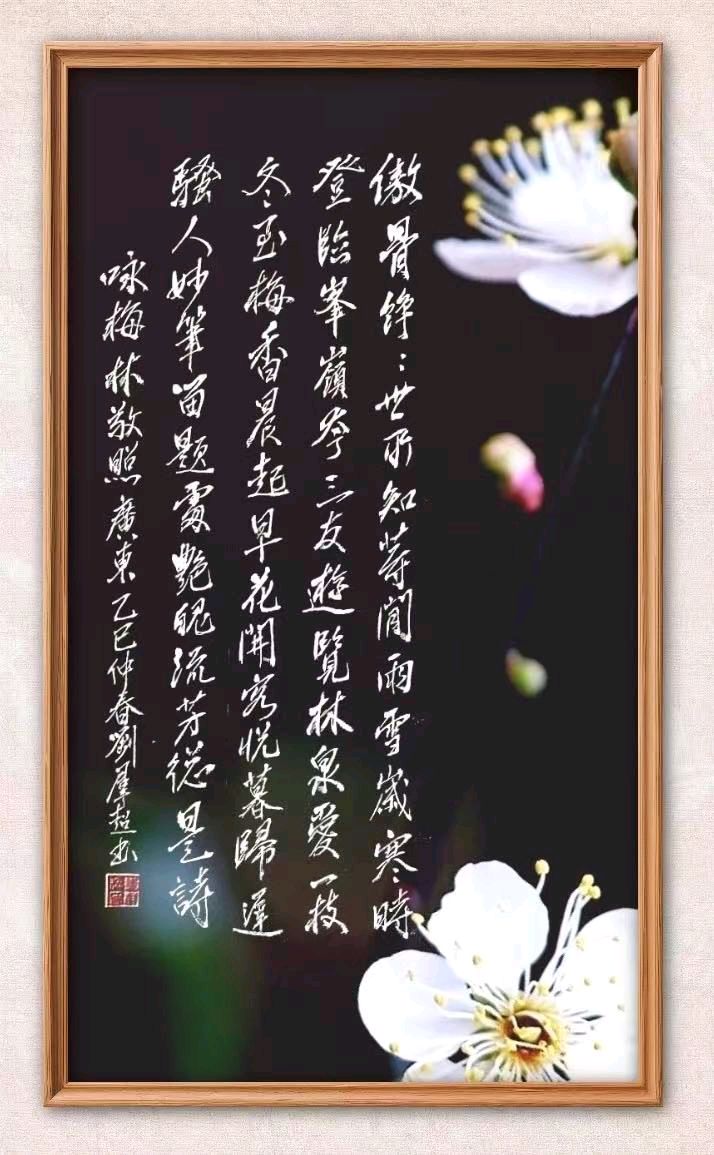 傲骨錚〻世所知等閒雨雪歲寒時
登臨峯嶺夸三友遊覽林泉愛一枝
冬至梅香晨起早花開客悅暮歸遲
騷人妙筆留題處艷魄流芳總是詩
咏梅林敬照廣東乙巳仲春劉群超書